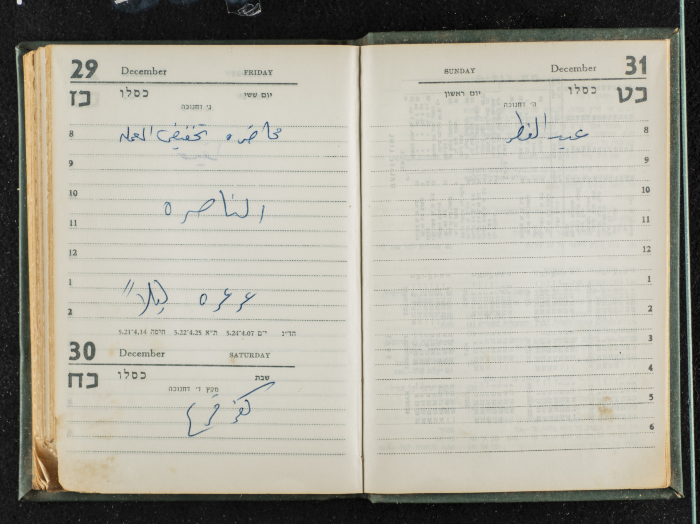 29 December FRIDAY
כז כסלו יום ששי
ג׳ דחנוכה
8 محاضره تخفيض العمله
9
10
الناصره
11
12
1
عرعره ليلا"
2
הדי״נ י״ם 4.07־5.24 ת״א 4.25־5.22 חיפה 4.14־5.21
30 December SATURDAY
כח כסלו שבת
מקץ ד׳ דחנוכה
كفر قرع
SUNDAY December 31
יום ראשון כסלו כט
ה׳ דחנוכה
عيد الفطر 8
9
10
11
12
1
2
3
4
5
6